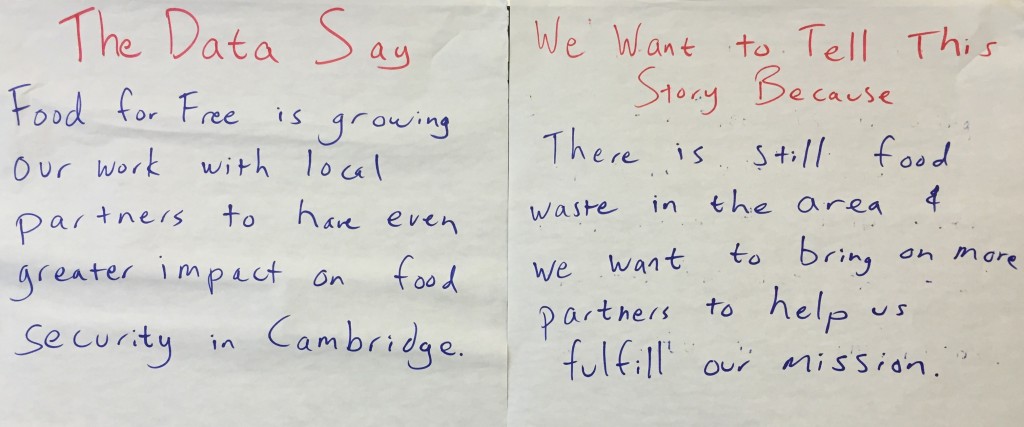 The Data Say
Food for Free is growing
our work with local
partners to have even
greater impact on food
security in Cambridge.
We Want to Tell This
Story Because
There is still food
waste in the area &
we want to bring on more
partners to help us
fulfill our mission.